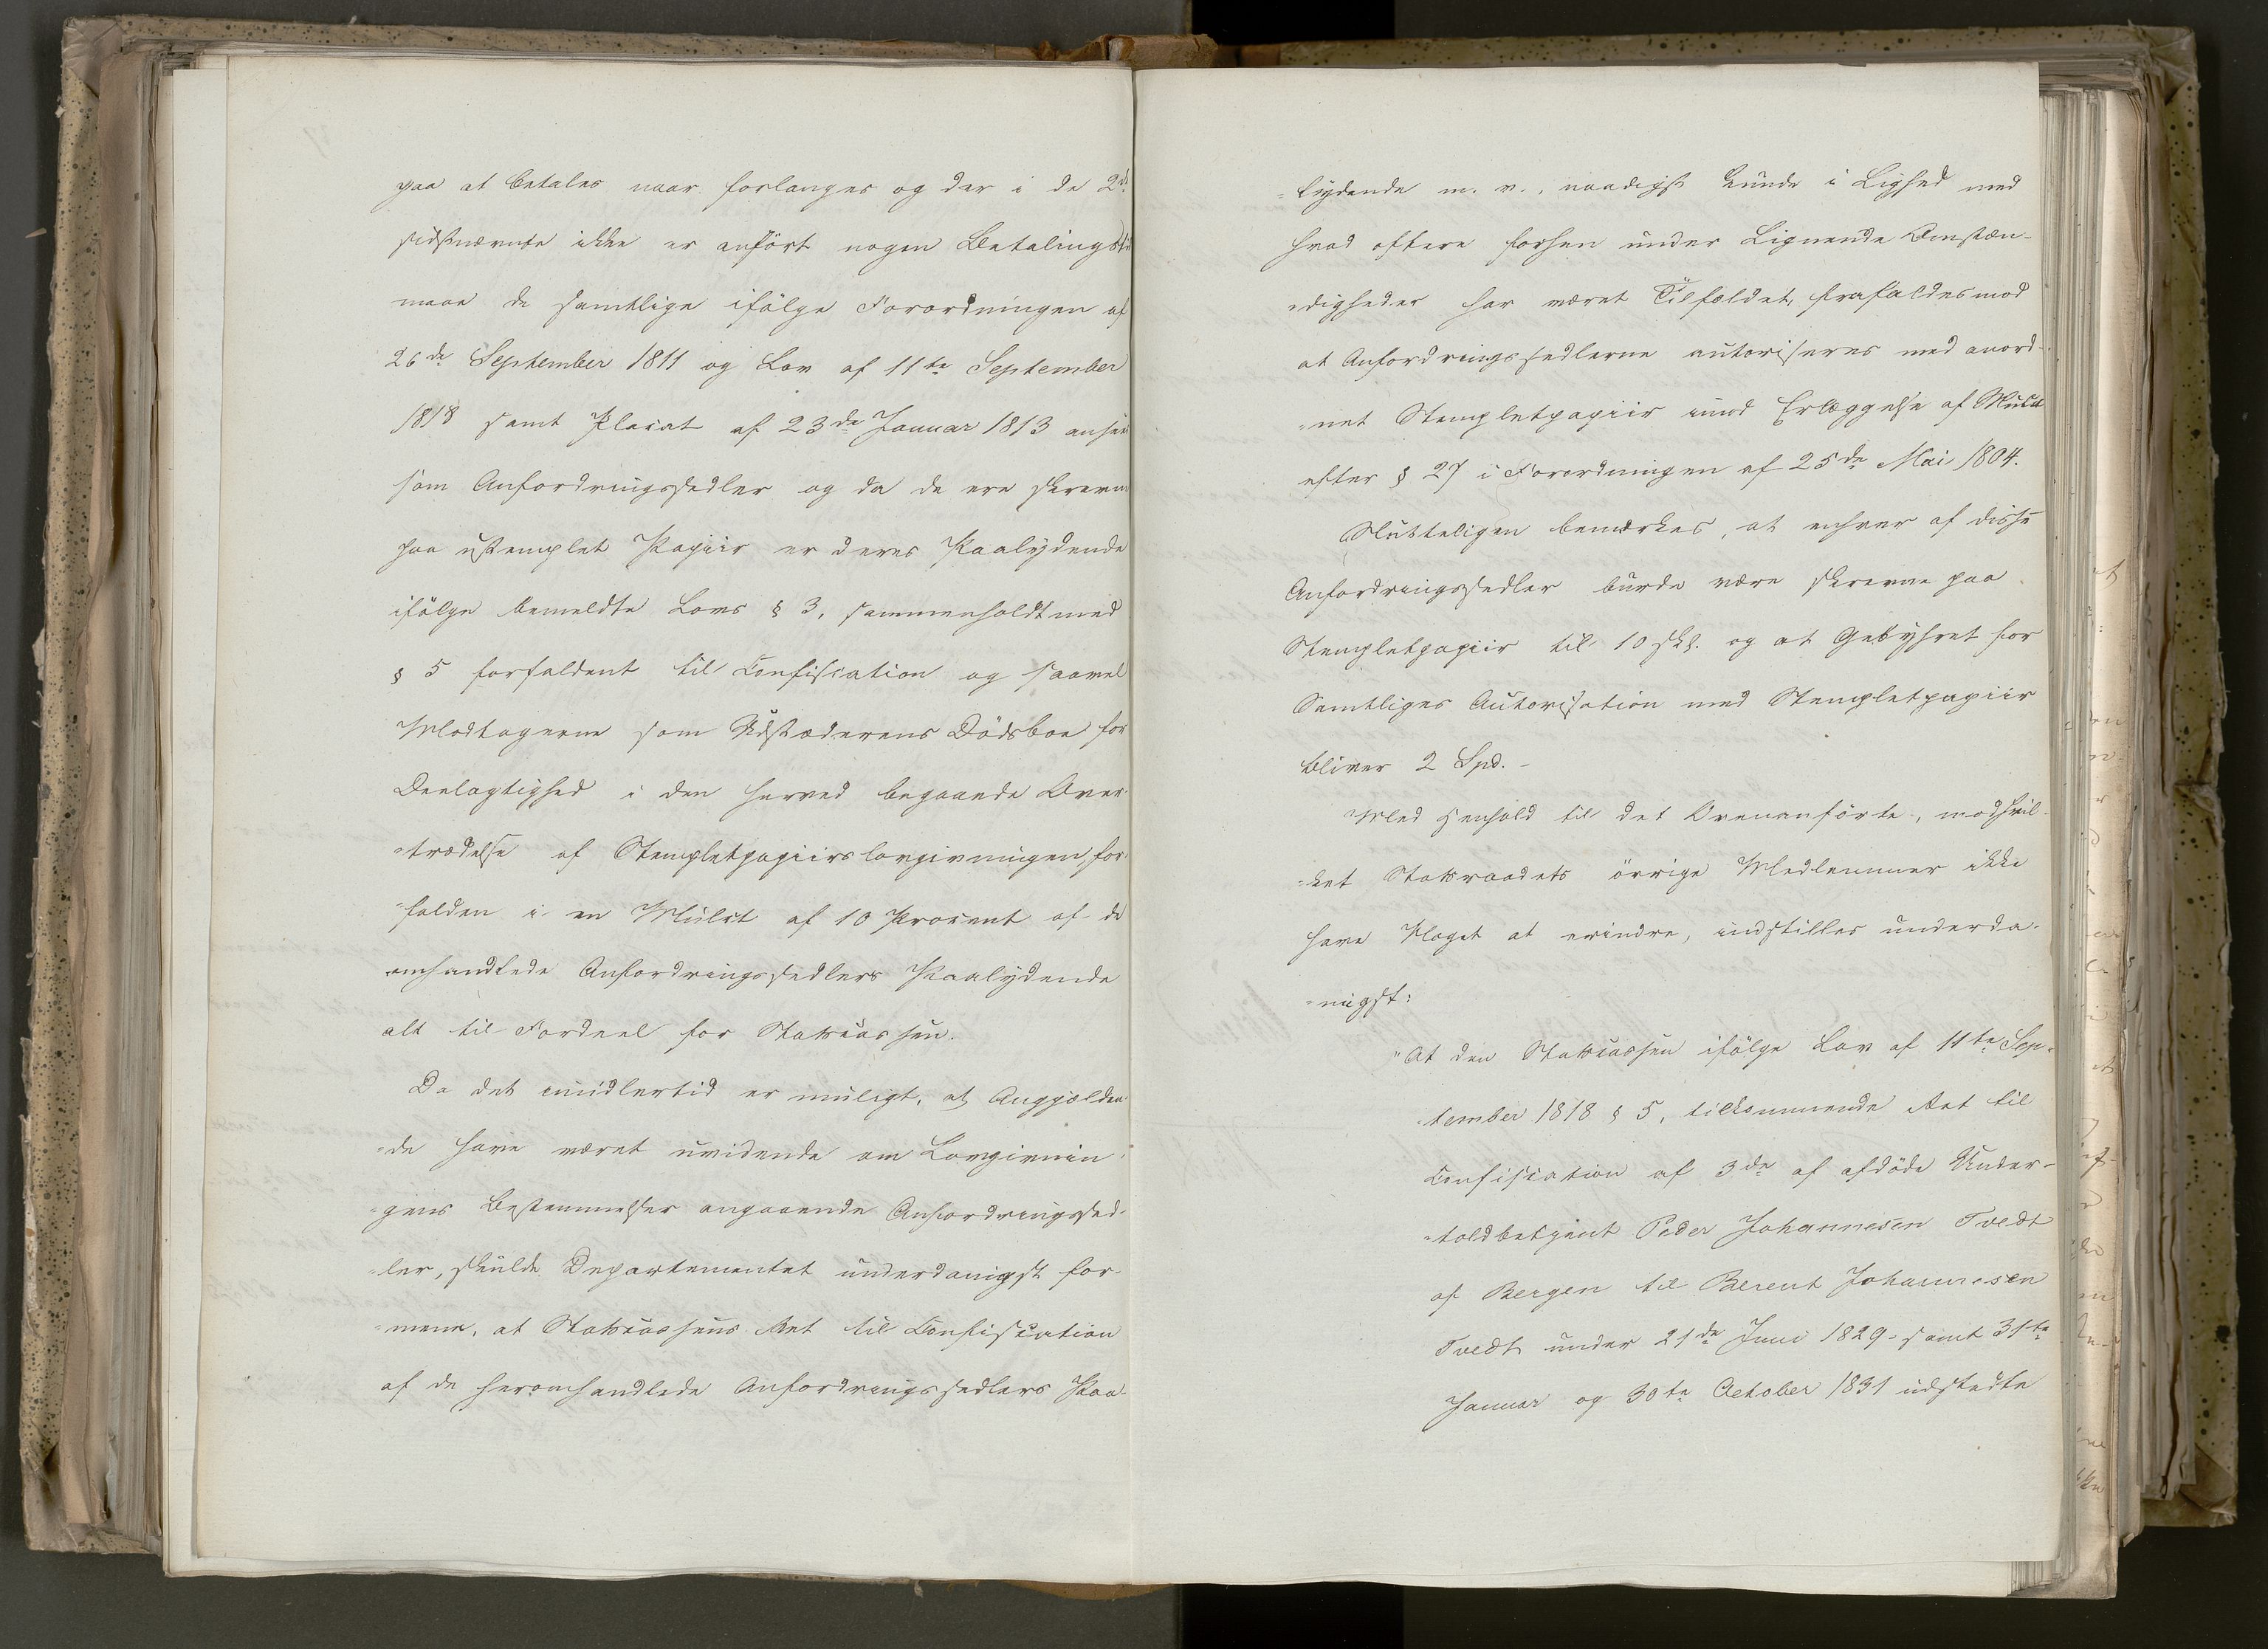 paa at betales naar forlanges og der i de 2de
sidstnævnte ikke er anført nogen Betalingstid
maae de samtlige ifölge Forordningen af
26de September 1811 og Lov af 11te September
1818 samt Placat af 23de Januar 1813 ansees
som Anfordringssedler og da de ere skrevne
paa ustemplet Papiir er deres Paalydende
ifölge bemeldte Lovs § 3, sammenholdt med
§ 5 forfaldent til Confiscation og saavel
Modtagerne som Udstæderens Dödsboe for
Deelagtighed i den herved begaaede Over-
-trædelse af Stempletpapiirslovgivningen, for-
-falden i en Mulct af 10 Procent af de
omhandlede Anfordringssedlers Paalydende
alt til Fordeel for Statscassen.
Da det imidlertid er muligt, at Angjælden-
-de have været uvidende om Lovgivnin-
-gens Bestemmelser angaaende Anfordringssed-
-ler, skulde Departementet underdanigst for-
-mene, at Statscassens Ret til Confiscation
af de heromhandlede Anfordringssedlers Paa-
-lydende m. v., naadigst kunde i Lighed med
hvad oftere forhen under Lignende Omstæn-
-digheder har været Tilfældet, frafaldes mod
at Anfordringssedlerne autoriseres med anord-
-net Stempletpapiir imod Erlæggelse af Mulct
efter § 27 i Forordningen af 25de Mai 1804.
Slutteligen bemærkes, at enhver af disse
Anfordringssedler burde være skrevne paa
Stempletpapiir til 10 skl. og at Gebyhret for
Samtliges Autorisation med Stempletpapiir
bliver 2 Spd. -
Med Henhold til det Ovenanförte, mod hvil-
-ket Statsraadets övrige Medlemmer ikke
have Noget at erindre, indstilles underda-
-nigst:
"At den Statscassen ifölge Lov af 11te Sep-
-tember 1818 § 5, tilkommende Ret til
Confiscation af 3de af afdöde Under-
-toldbetjent Peder Johannesen Tvedt
af Bergen til Berent Johannesen
Tvedt under 21de Juni 1829 - samt 31te
Januar og 30te October 1831 udstedte